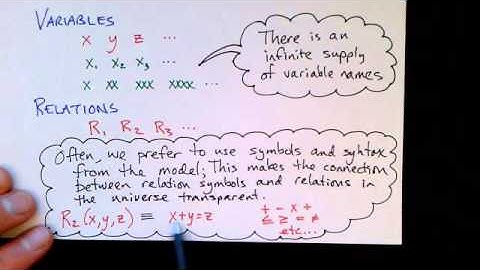 VARIABLES
x y z ...
x₁ x₂ x₃ ...
x xx xxx xxxx ...
There is an
infinite supply
of variable names
RELATIONS
R₁ R₂ R₃ ...
Often, we prefer to use symbols and syntax
from the model; This makes the connection
between relation symbols and relations in
the universe transparent.
R₂(x,y,z) ≡ x+y=z
+ - × ÷
≤ ≥ = ≠
etc...